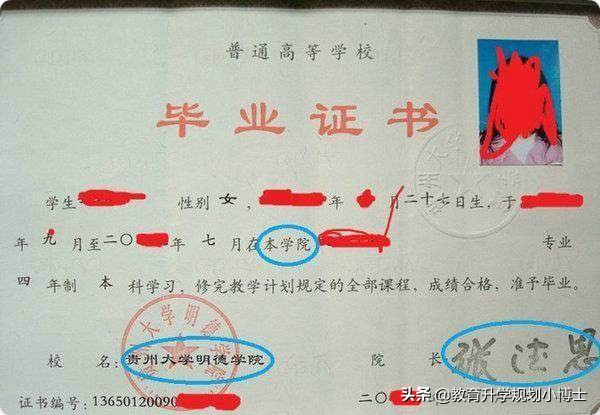 普通高等学校
毕业证书
学生 性别 女, 年 月二十七日生,于
年 九 月至二〇 年 七 月在本学院 专业
四 年制 本 科学习,修完教学计划规定的全部课程,成绩合格,准予毕业。
贵州大学明德学院
校 名:贵州大学明德学院 院 长
证书编号:13650120090 二〇
头条 @教育升学规划小博士